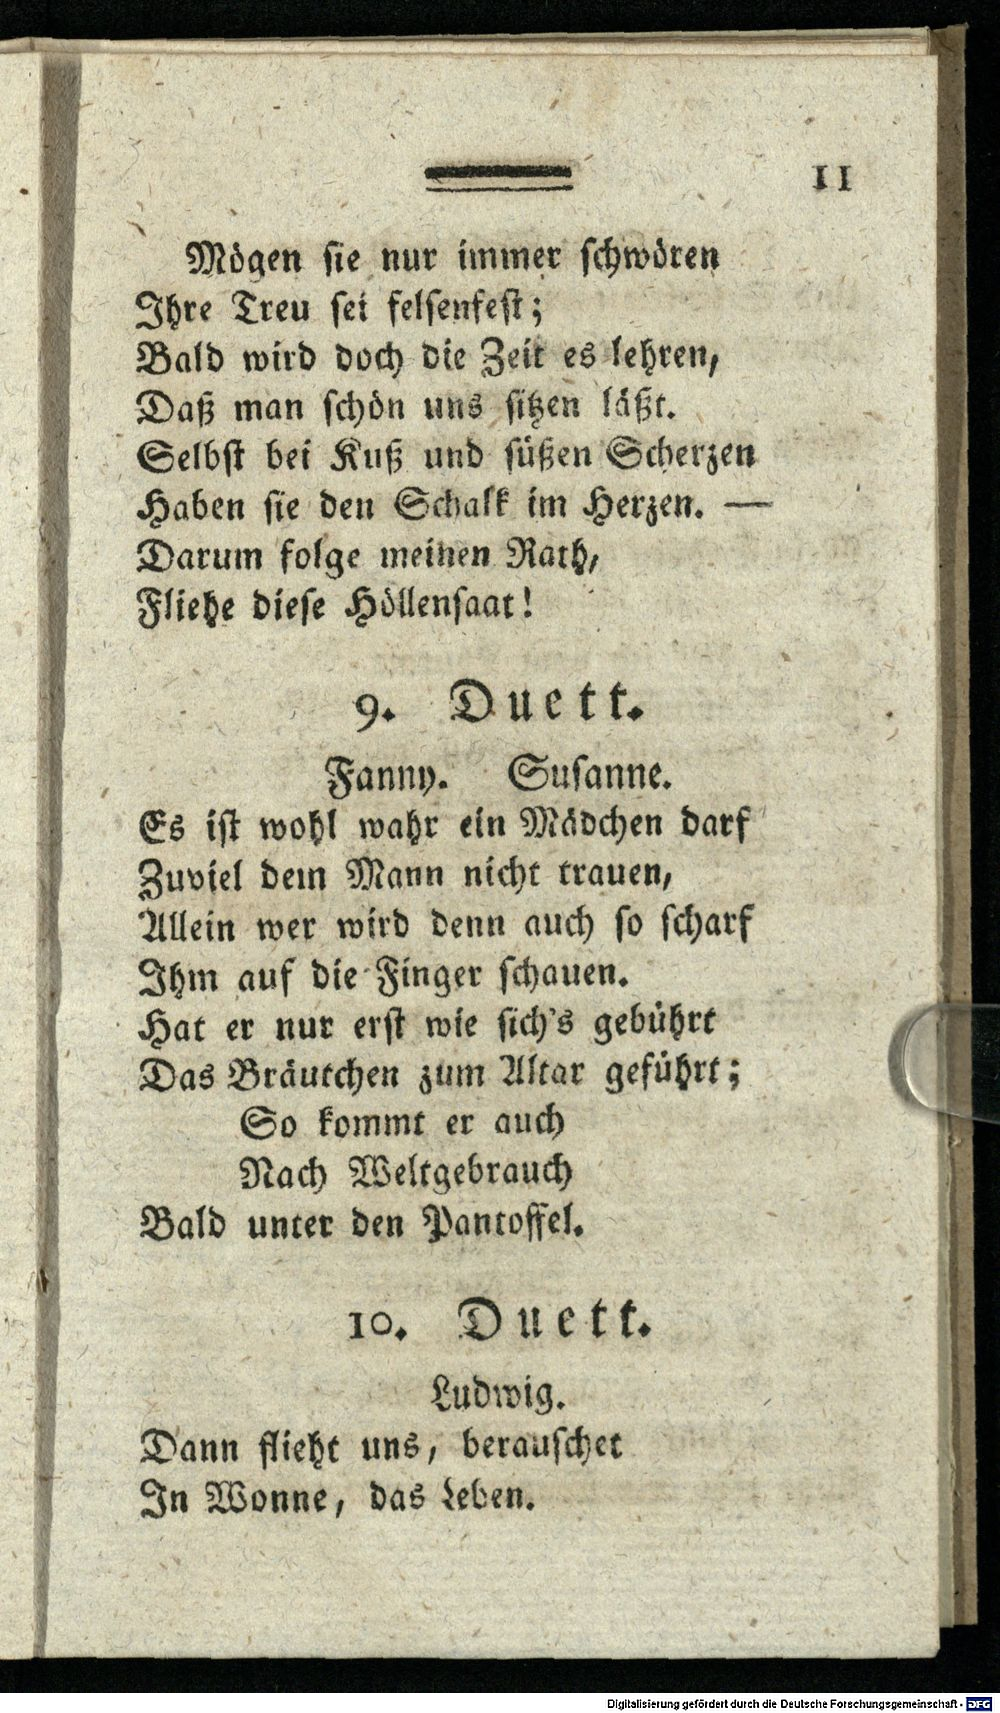 11
Mögen sie nur immer schwören
Ihre Treu sei felsenfest;
Bald wird doch die Zeit es lehren,
Daß man schön uns sitzen läßt.
Selbst bei Kuß und süßen Scherzen
Haben sie den Schalk im Herzen. —
Darum folge meinen Rath,
Fliehe diese Höllensaat!
9. Duett.
Fanny. Susanne.
Es ist wohl wahr ein Mädchen darf
Zuviel dem Mann nicht trauen,
Allein wer wird denn auch so scharf
Ihm auf die Finger schauen.
Hat er nur erst wie sich's gebührt
Das Bräutchen zum Altar geführt;
So kommt er auch
Nach Weltgebrauch
Bald unter den Pantoffel.
10. Duett.
Ludwig.
Dann flieht uns, berauschet
In Wonne, das Leben.
Digitalisierung gefördert durch die Deutsche Forschungsgemeinschaft - DFG